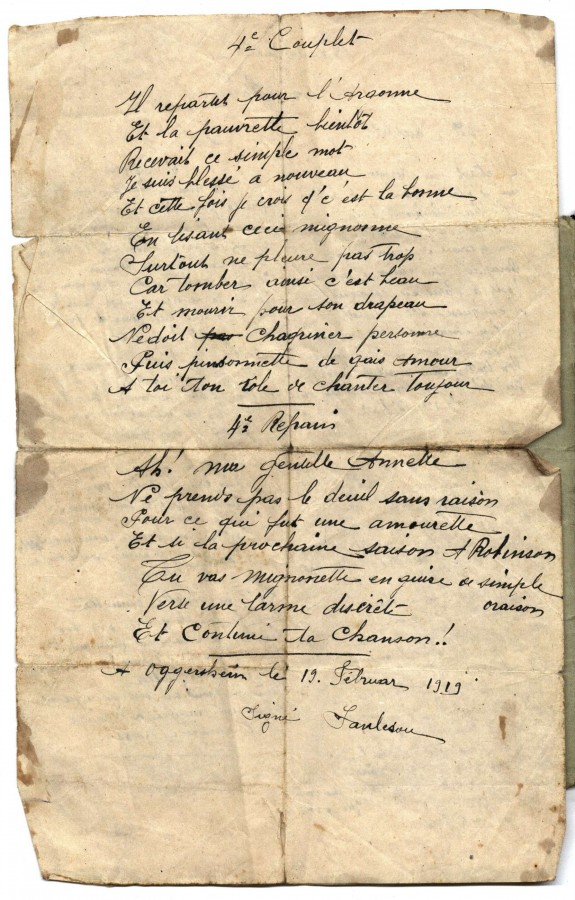 4e Couplet
Il repartit pour l'Argonne
Et la pauvrette bientôt
Recevait ce simple mot
Je suis blessé à nouveau
Et cette fois je crois q'c'est la bonne
En lisant ceci mignonne
Surtout ne pleure pas trop
Car tomber ainsi c'est beau
Et mourir pour son drapeau
Ne doit pas chagriner personne
Puis pinsonnette de gais amour
A toi ton role de chanter toujour
4e Refrain
Ah! ma gentille Annette
Ne prends pas le deuil sans raison
Pour ce qui fut une amourette
Et si la prochaine saison A Robinson
Tu vas mignonette en guise de simple
oraison
Verse une larme discrète
Et Continue ta Chanson!!
A Oggersheim le 19. Februar 1919
Signé